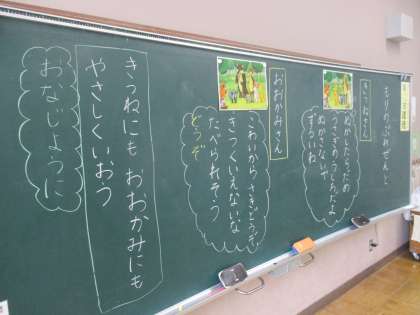 もりのぷれぜんと
きつねさん
ぬかしたらだめ
うさぎのうしろだよ
ぬかさないで
ずるいね
おおかみさん
こわいから さきどうぞ
きつくいえないな
たべられそう
どうぞ
きつねにも おおかみにも
やさしくいおう
おなじように